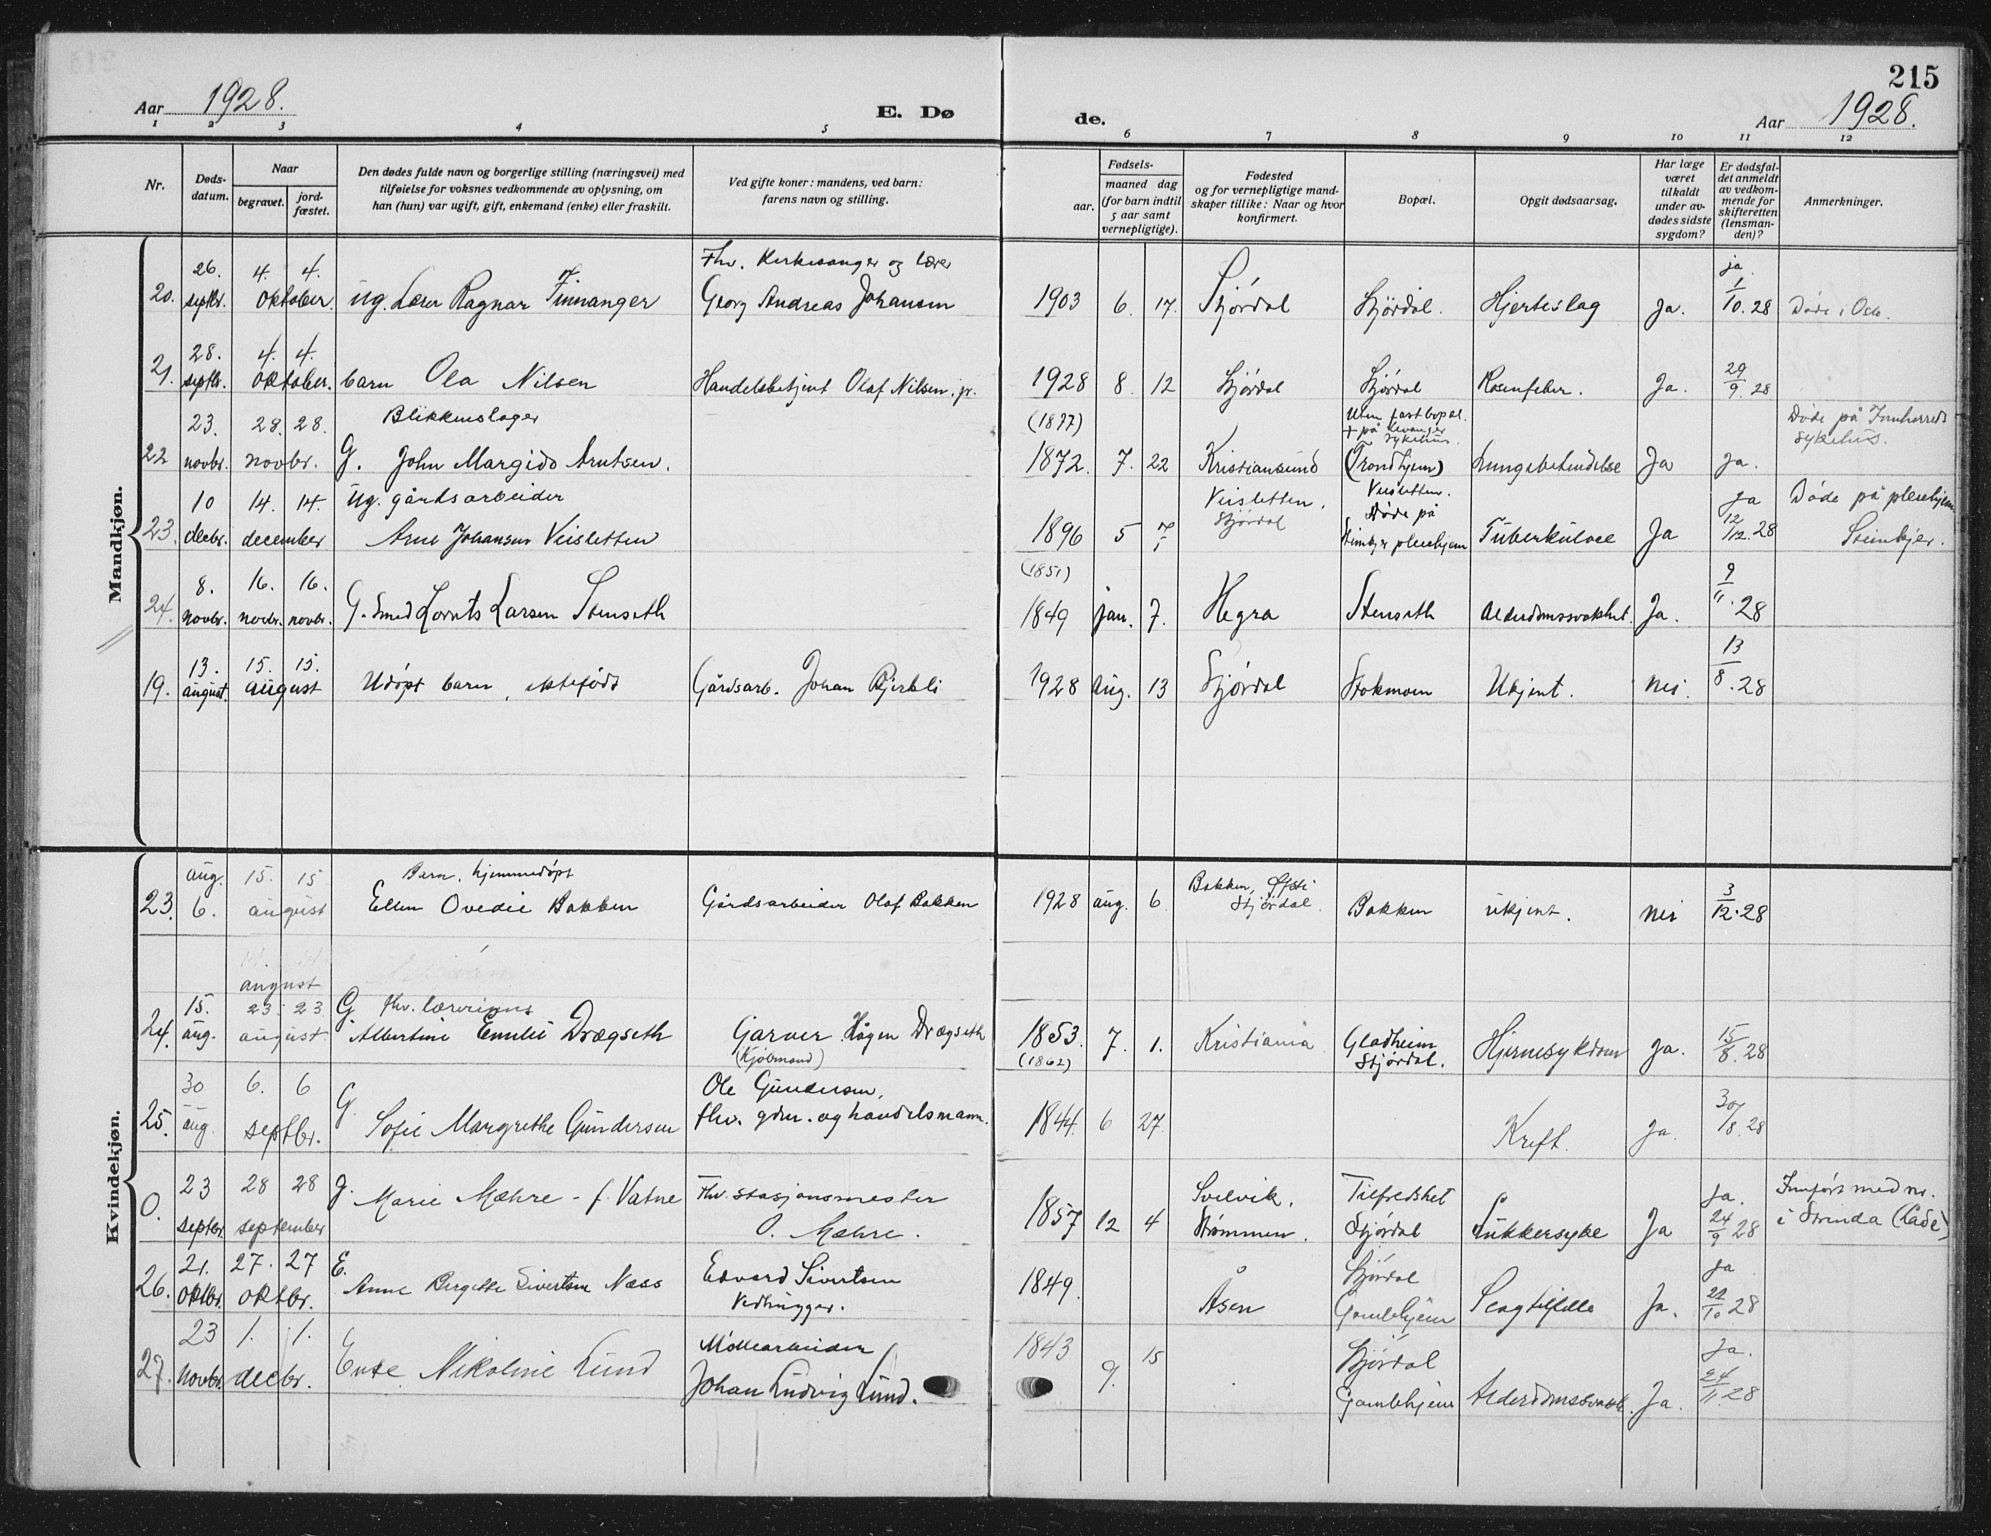 215
Aar 1928.
E. Dø
de.
Aar 1928.
1 2 3 4 5 6 7 8 9 10 11 12
Nr.
Døds-
datum.
Naar
begravet.
jord-
fæstet.
Den dødes fulde navn og borgerlige stilling (næringsvei) med
tilføielse for voksnes vedkommende av oplysning, om
han (hun) var ugift, gift, enkemand (enke) eller fraskilt.
Ved gifte koner: mandens, ved barn:
farens navn og stilling.
Fødsels-
aar.
maaned dag
(for barn indtil
5 aar samt
vernepligtige).
Fødested
og for vernepligtige mand-
skaper tillike: Naar og hvor
konfirmert.
Bopæl.
Opgit dødsaarsag.
Har læge
været
tilkaldt
under av-
dødes sidste
sygdom?
Er dødsfal-
det anmeldt
av vedkom-
mende for
skifteretten
(lensman-
den)?
Anmerkninger.
Mandkjøn.
26. 4. 4. Fhv. Kirkesanger og lærer ja.
20. septbr. oktober. ug. Lærer Ragnar Finnanger Georg Andreas Johansen 1903 6. 17. Stjørdal Stjørdal. Hjerteslag Ja. 1/10.28 Døde i Oslo.
28. 4. 4.
21. septbr. oktober. barn Ola Nilsen Handelsbetjent Olaf Nilsen, jr. 1928 8. 12 Stjørdal Stjørdal Rosenfeber. Ja. 29/9.28
23. 28. 28. Blikkenslager (1877) Uten fast bopæl. Døde på Innherreds
+ på Levanger
sykehus. sykehus.
22 novbr. novbr. G. John Margido Arntsen. 1872. 7. 22 Kristiansund (Trondhjem) Lungebetendelse Ja ja.
10 14. 14. ug. gårdsarbeider Veisletten. Veisletten. Ja Døde på pleiehjem
Stjørdal Døde på
23. decbr. december Arne Johansen Veisletten 1896 5 Steinkjer pleiehjem Tuberkulose Ja 12/12.28 Steinkjer.
8. 16. 16. (1851)
24. novbr. novbr. novbr. G. Smed Lornts Larsen Stenseth 1849 jan. 7. Hegra Stenseth Alderdomssvakhet. Ja. 9/11.28
13. 15. 15.
19. august. august Udøpt barn, ektefødt Gårdsarb. Johan Bjerkli 1928 Aug. 13 Stjørdal Stokmoen Ukjent. nei. 13/8.28
Kvindekjøn.
aug. 15. 15 Barn, hjemmedøpt Bakken, Øfsti
Stjørdal.
23. 6. august Ellen Ovedie Bakken Gårdsarbeider Olaf Bakken 1928 aug. 6 Bakken ukjent. nei 3/12.28
august
15. 23. 23 G Fhv. lærerinne
24. aug. august. Albertine Emilie Drægseth Garver Hågen Drægseth 1853. 7. 1. Kristiania Gladheim Hjernesykdom ja. 15/8.28
(Kjøbmand) (1862) Stjørdal.
30 6. 6 G. Ole Gundersen,
25. aug. septbr. Sofie Margrethe Gundersen fhv. gdm. og handelsmann. 1844. 6 27. Kreft. Ja. 30/8.28
23 28 28 g. Marie Mæhre - f. Vatne Fhv. stasjonsmester Svelvik, Tilfredshet Ja. Innførs med nr.
0. septbr. september O. Mæhre. 1857 12 4 Strømmen. Stjørdal Sukkersyke Ja 24/9 28 i Strinda (Lade)
21. 27. 27 E. Edvard Sivertsen Stjørdal ja
26. oktbr. oktbr. Anne Bergitte Sivertsen Næss Vedhugger. 1849. Åsen Gamlehjem Slagtilfelle Ja. 22/10 28
23 1. 1. Møllearbeider 1843 15 Stjørdal Ja.
27. novbr. decbr. Enke Nikoline Lund Johan Ludvig Lund. 9. Gamlehjem Alderdomssvakh. Ja. 24/11.28